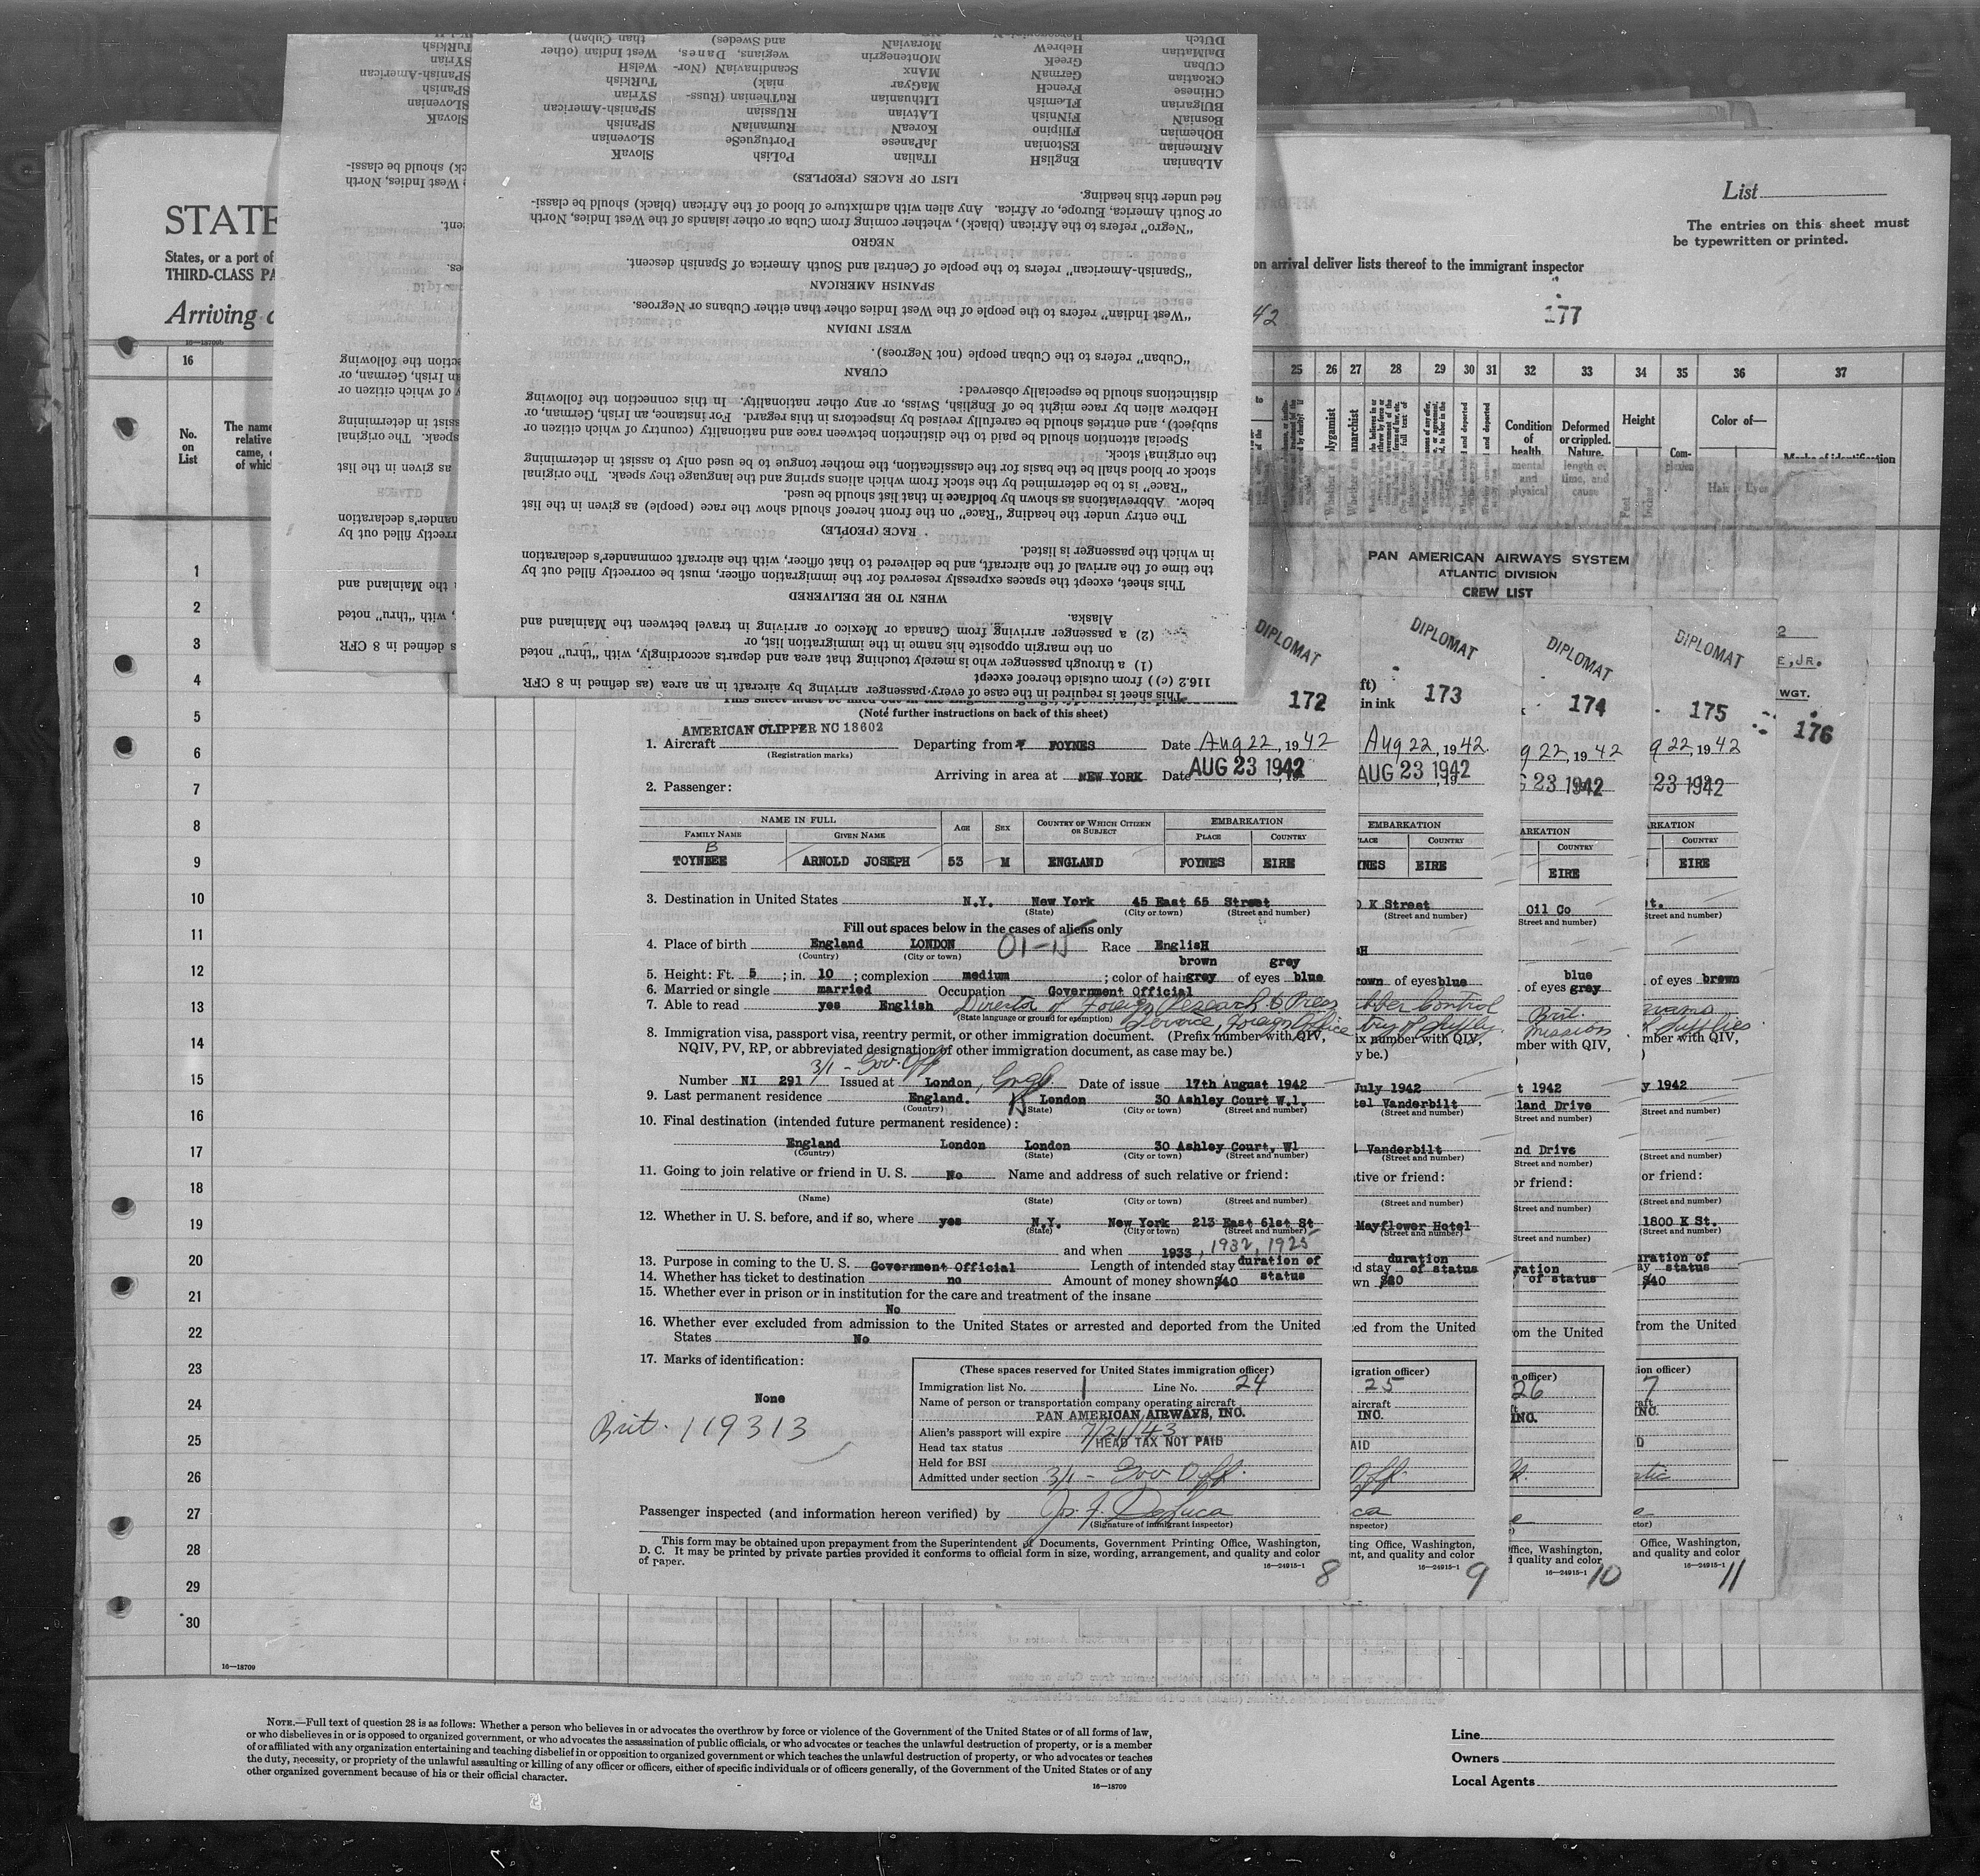 STATE
States, or a port of
THIRD-CLASS PA
Arriving
16—18709b
16
No.
on
List
The name
relative
came,
of which
1
2
3
4
5
6
7
8
9
10
11
12
13
14
15
16
17
18
19
20
21
22
23
24
25
26
27
28
29
30
16—18709
This sheet is required in the case of every passenger arriving by aircraft in an area (as defined in 8 CFR
116.2 (c)) from outside thereof except
(1) a through passenger who is merely touching that area and departs accordingly, with "thru" noted
on the margin opposite his name in the immigration list, or
(2) a passenger arriving from Canada or Mexico or arriving in travel between the Mainland and
Alaska.
WHEN TO BE DELIVERED
This sheet, except the spaces expressly reserved for the immigration officer, must be correctly filled out by
the time of the arrival of the aircraft, and be delivered to that officer, with the aircraft commander's declaration
in which the passenger is listed.
RACE (PEOPLE)
The entry under the heading "Race" on the front hereof should show the race (people) as given in the list
below. Abbreviations as shown by boldface in that list should be used.
"Race" is to be determined by the stock from which aliens spring and the language they speak. The original
stock or blood shall be the basis for the classification, the mother tongue to be used only to assist in determining
the original stock.
Special attention should be paid to the distinction between race and nationality (country of which citizen or
subject), and entries should be carefully revised by inspectors in this regard. For instance, an Irish, German, or
Hebrew alien by race might be of English, Swiss, or any other nationality. In this connection the following
distinctions should be especially observed:
CUBAN
"Cuban" refers to the Cuban people (not Negroes).
WEST INDIAN
"West Indian" refers to the people of the West Indies other than either Cubans or Negroes.
SPANISH AMERICAN
"Spanish-American" refers to the people of Central and South America of Spanish descent.
NEGRO
"Negro" refers to the African (black), whether coming from Cuba or other islands of the West Indies, North
or South America, Europe, or Africa. Any alien with admixture of blood of the African (black) should be classi-
fied under this heading.
LIST OF RACES (PEOPLES)
ALbanian EnglisH ITalian PoLish SlovaK
ARmenian EStonian JaPanese PortugueSe SLovenian
BOhemian FIlipino KoreaN RumaniaN SPanish
BosniaN FiNnisH LAtvian RUssian SPanish-American
BUlgarian FLemish LIthuanian RuThenian (Russ- SYrian
CHinese FrencH MaGyar niak) TuRkish
CRoatian GermaN MAnx ScandinaviaN (Nor- WelsH
CUban GreeK MOntenegrin wegians, Danes, West Indian (other
DalMatian HebreW MoraviaN and Swedes) than Cuban)
DUtch
SlovaK
SLovenian
SPanish
SPanish-American
SYrian
TuRkish
List
The entries on this sheet must
be typewritten or printed.
on arrival deliver lists thereof to the immigrant inspector
42
177
25 26 27 28 29 30 31 32 33 34 35 36 37
Condition
of
health,
mental
and
physical
Deformed
or crippled.
Nature,
length of
time, and
cause
Height
Feet
Inches
Com-
plexion
Color of—
Hair Eyes
Marks of identification
PAN AMERICAN AIRWAYS SYSTEM
ATLANTIC DIVISION
CREW LIST
E, JR.
WGT.
176
DIPLOMAT
172
(Note further instructions on back of this sheet)
AMERICAN CLIPPER NC 18602
1. Aircraft Departing from FOYNES Date Aug 22, 1942
(Registration marks)
Arriving in area at NEW YORK Date AUG 23 1942
2. Passenger:
NAME IN FULL AGE SEX COUNTRY OF WHICH CITIZEN OR SUBJECT EMBARKATION
FAMILY NAME GIVEN NAME PLACE COUNTRY
B
TOYNBEE ARNOLD JOSEPH 53 M ENGLAND FOYNES EIRE
3. Destination in United States N.Y. New York 45 East 65 Street
(State) (City or town) (Street and number)
Fill out spaces below in the cases of aliens only
4. Place of birth England LONDON 01-15 Race EnglisH
(Country) (City or town)
brown grey
5. Height: Ft. 5 ; in. 10 ; complexion medium ; color of hair grey of eyes blue
6. Married or single married Occupation Government Official
7. Able to read yes English Director of Foreign Research & Press
(State language or ground for exemption) Service, Foreign Office
8. Immigration visa, passport visa, reentry permit, or other immigration document. (Prefix number with QIV,
NQIV, PV, RP, or abbreviated designation of other immigration document, as case may be.)
3/1 - Gov. Off
Number NI 291 Issued at London, Engl. Date of issue 17th August 1942
9. Last permanent residence England. London 30 Ashley Court W.1.
(Country) (State) (City or town) (Street and number)
10. Final destination (intended future permanent residence):
England London London 30 Ashley Court, W1
(Country) (State) (City or town) (Street and number)
11. Going to join relative or friend in U. S. No Name and address of such relative or friend:
(Name) (State) (City or town) (Street and number)
12. Whether in U. S. before, and if so, where yes N.Y. New York 213 East 61st St
(State) (City or town) (Street and number)
and when 1933, 1932, 1925
13. Purpose in coming to the U. S. Government Official Length of intended stay duration of
14. Whether has ticket to destination no Amount of money shown $40 status
15. Whether ever in prison or in institution for the care and treatment of the insane
No
16. Whether ever excluded from admission to the United States or arrested and deported from the United
States No
17. Marks of identification:
None
Brit. 119313
(These spaces reserved for United States immigration officer)
Immigration list No. 1 Line No. 24
Name of person or transportation company operating aircraft
PAN AMERICAN AIRWAYS, INC.
Alien's passport will expire 7/21/43
Head tax status HEAD TAX NOT PAID
Held for BSI
Admitted under section 3/1 - Gov Off.
Passenger inspected (and information hereon verified) by Jos. F. DeLuca
(Signature of immigrant inspector)
This form may be obtained upon prepayment from the Superintendent of Documents, Government Printing Office, Washington,
D. C. It may be printed by private parties provided it conforms to official form in size, wording, arrangement, and quality and color
of paper.
16—24915-1
8
DIPLOMAT
173
ft)
in ink
Aug 22, 1942.
AUG 23 1942
EMBARKATION
LACE COUNTRY
NES EIRE
K Street
(Street and number)
rown of eyes blue
bber Control
ix number with QIV,
y be.)
July 1942
tel Vanderbilt
(Street and number)
Vanderbilt
(Street and number)
tive or friend:
(Street and number)
Mayflower Hotel
(Street and number)
duration
ed stay of status
wn $20
ted from the United
igration officer)
25
aircraft
INC.
AID
Off.
ca
nspector)
ting Office, Washington,
nt, and quality and color
16—24915-1
9
DIPLOMAT
174
g 22, 1942
G 23 1942
ARKATION
COUNTRY
EIRE
Oil Co
(Street and number)
blue
of eyes grey
Brit.
Mission
mber with QIV,
t 1942
land Drive
(Street and number)
nd Drive
(Street and number)
or friend:
(Street and number)
ration
of status
om the United
n officer)
26
INC.
ffice, Washington,
d quality and color
16—24915-1
10
DIPLOMAT
175
g 22, 1942
23 1942
RKATION
COUNTRY
EIRE
t.
(Street and number)
of eyes brown
f Supplies
mber with QIV,
y 1942
(Street and number)
(Street and number)
or friend:
(Street and number)
1800 K St.
(Street and number)
uration of
ay status
$40
from the United
ion officer)
7
raft
INC.
D
atic
ctor)
Office, Washington,
and quality and color
16—24915-1
11
NOTE.—Full text of question 28 is as follows: Whether a person who believes in or advocates the overthrow by force or violence of the Government of the United States or of all forms of law,
or who disbelieves in or is opposed to organized government, or who advocates the assassination of public officials, or who advocates or teaches the unlawful destruction of property, or is a member
of or affiliated with any organization entertaining and teaching disbelief in or opposition to organized government or which teaches the unlawful destruction of property, or who advocates or teaches
the duty, necessity, or propriety of the unlawful assaulting or killing of any officer or officers, either of specific individuals or of officers generally, of the Government of the United States or of any
other organized government because of his or their official character.
16—18709
Line
Owners
Local Agents